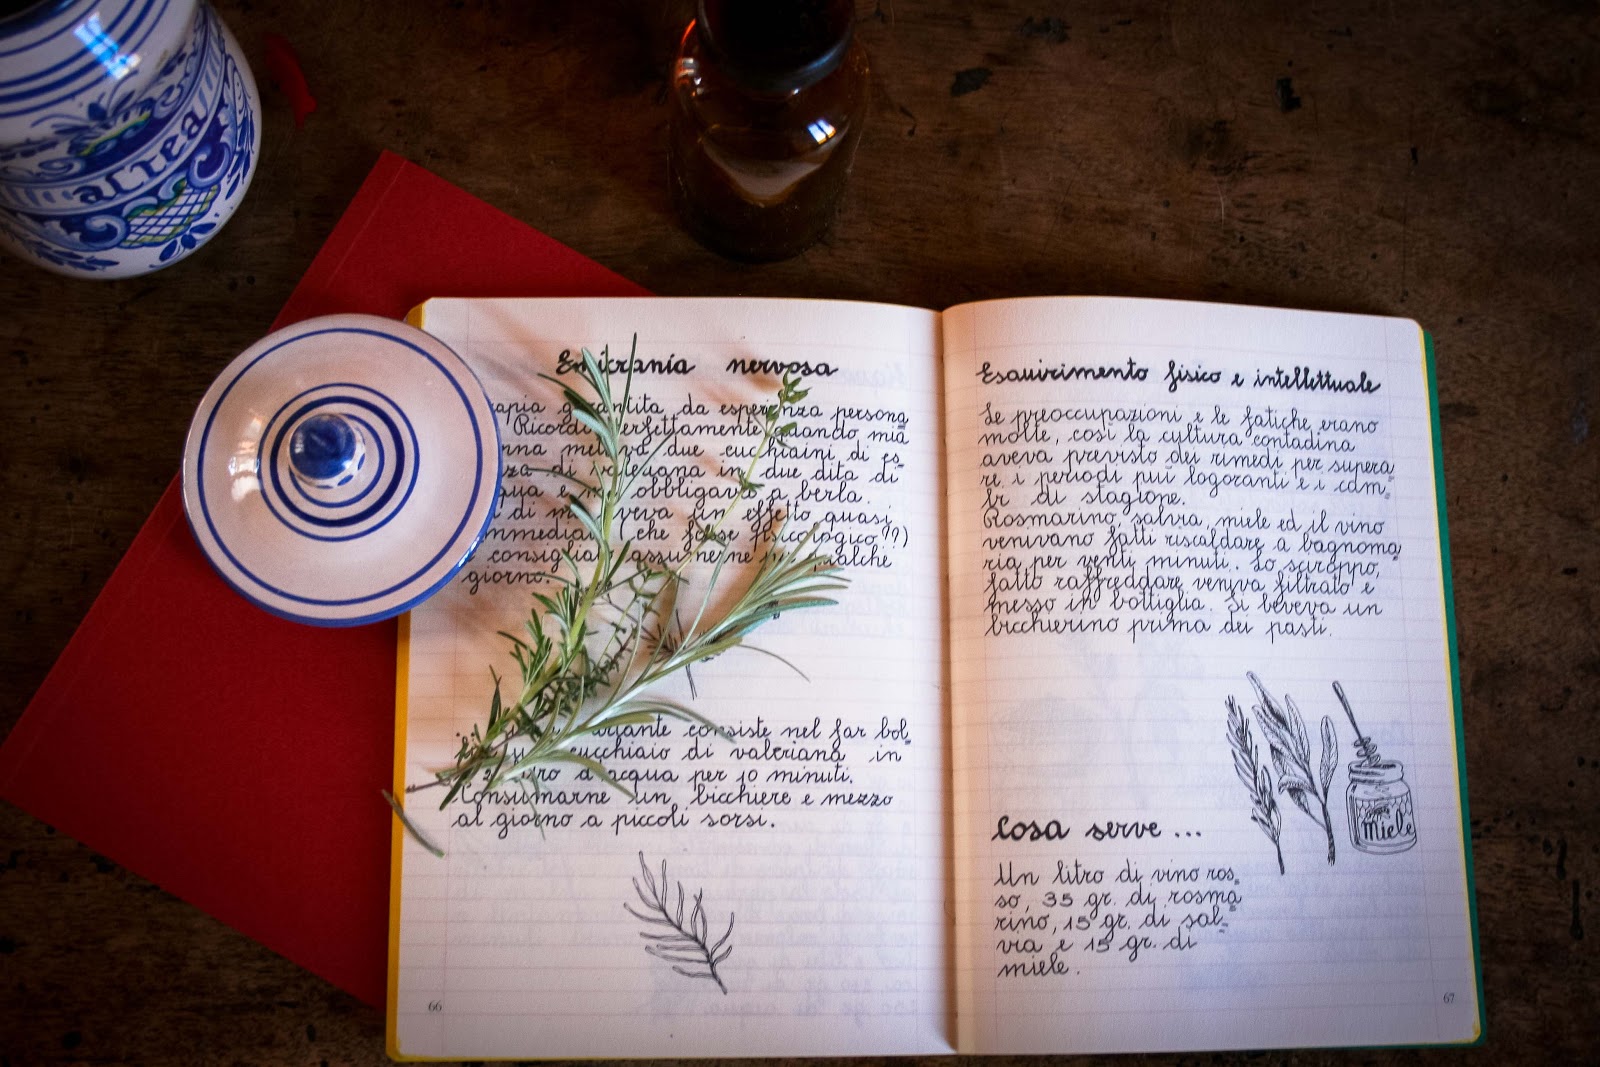 acrea
Emicrania nervosa
apia garantita da esperienza persona
Ricordo perfettamente quando mia
nna metteva due cucchiaini di es=
za di valeriana in due dita di
qua e mi obbligava a berla.
di me aveva un effetto quasi
mmediato (che fosse psicologico??)
consigliato assumerne per qualche
giorno.
consiste nel far bol=
cucchiaio di valeriana in
d'acqua per 10 minuti.
Consumarne un bicchiere e mezzo
al giorno a piccoli sorsi.
66
Esaurimento fisico e intellettuale
Le preoccupazioni e le fatiche erano
molte, così la cultura contadina
aveva previsto dei rimedi per supera=
re i periodi più logoranti e i cam=
bi di stagione.
Rosmarino, salvia, miele ed il vino
venivano fatti riscaldare a bagnoma=
ria per venti minuti. Lo sciroppo,
fatto raffreddare veniva filtrato e
messo in bottiglia. Si beveva un
bicchierino prima dei pasti.
Miele
Cosa serve ...
Un litro di vino ros=
so, 35 gr. di rosma=
rino, 15 gr. di sal=
via e 15 gr. di
miele.
67